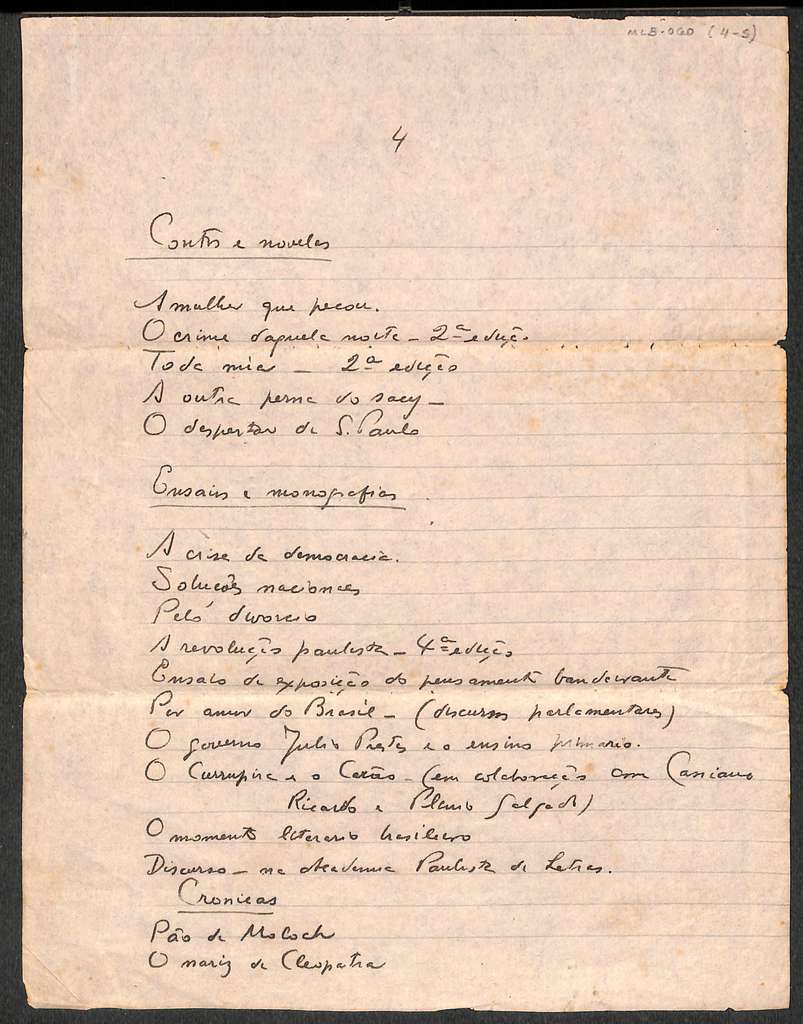 MLB-060 (4-5)
4
Contos e novelas
A mulher que pecou.
O crime daquela noite - 2ª edição
Toda mia - 2ª edição
A outra perna do sacy -
O despertar de S. Paulo
Ensaios e monografias
A crise da democracia.
Soluções nacionaes
Pelo divorcio
A revolução paulista - 4ª edição
Ensaio de exposição do pensamento bandeirante
Por amor do Brasil - (discursos parlamentares)
O governo Julio Prestes e o ensino primario.
O Currupira e o Carão - (em colaboração com Cassiano
Ricardo e Plinio Salgado)
O momento literario brasileiro
Discurso - na Academia Paulista de Letras.
Cronicas
Pão de Moloch
O nariz de Cleopatra